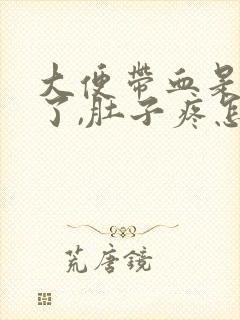 大便带血是
了,肚子疼怎
荒唐镜